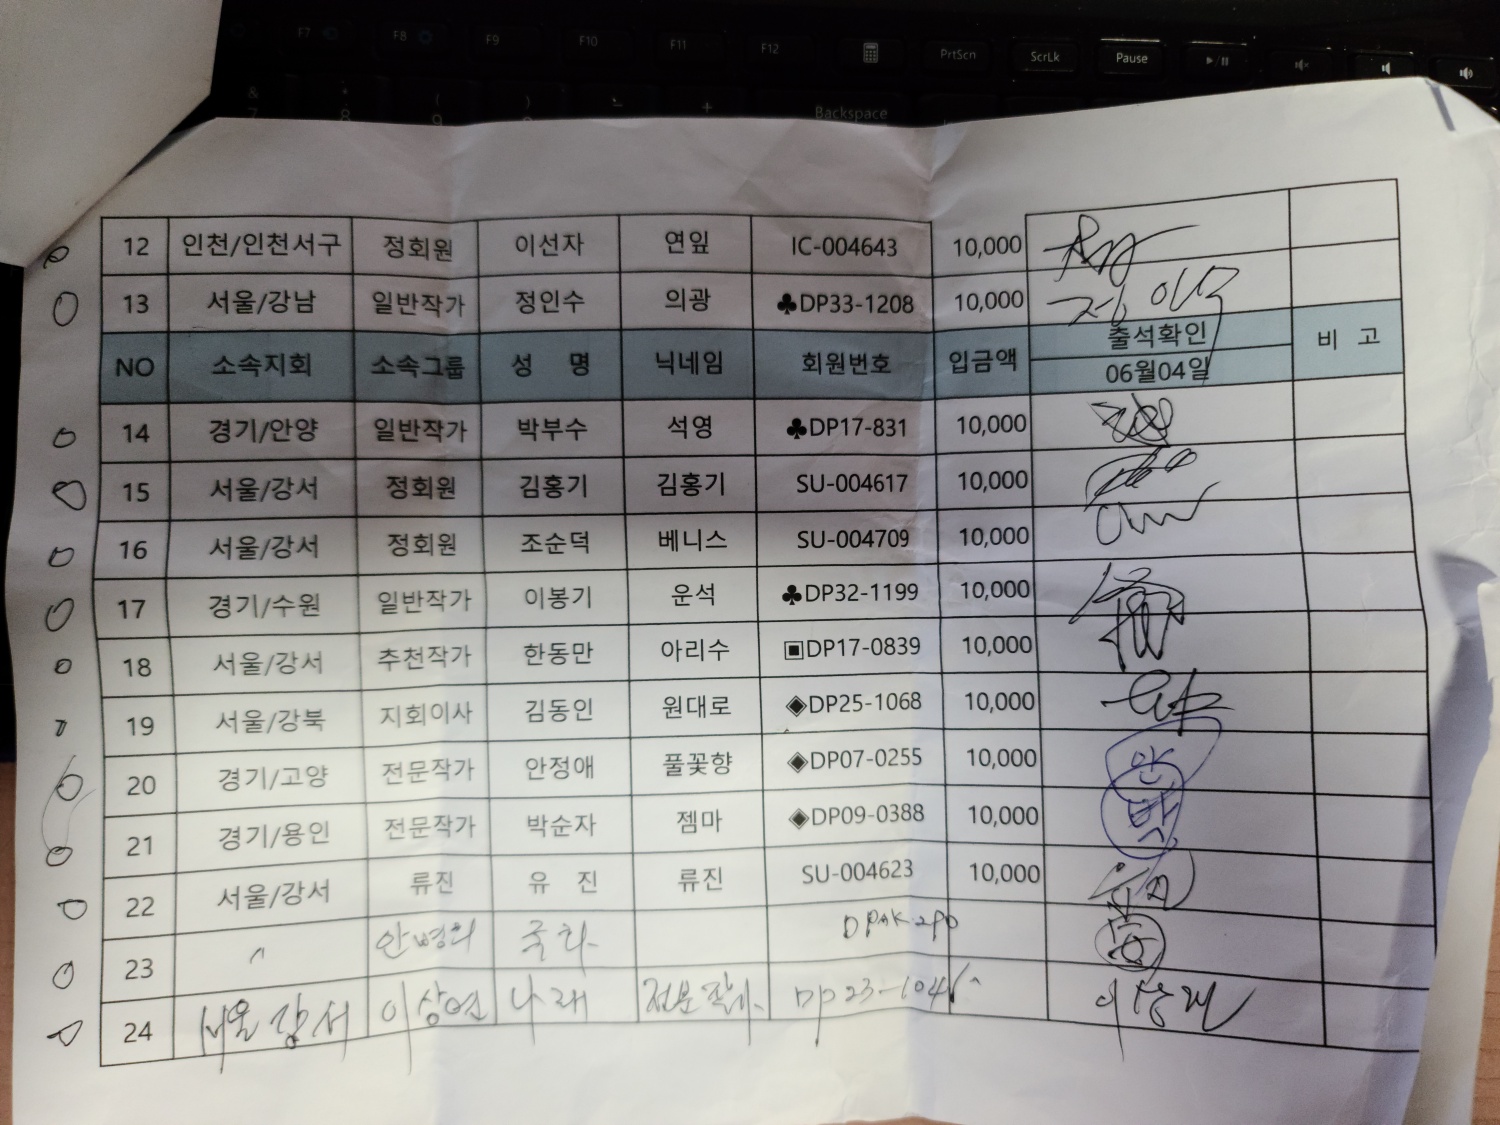 F7 F8 F9 F10 F11 F12 PrtScn ScrLk Pause
& 7 * 8 ( 9 ) - + Backspace
12 인천/인천서구 정회원 이선자 연잎 IC-004643 10,000
13 서울/강남 일반작가 정인수 의광 ♣DP33-1208 10,000 정인수
NO 소속지회 소속그룹 성 명 닉네임 회원번호 입금액 출석확인 비 고
06월04일
14 경기/안양 일반작가 박부수 석영 ♣DP17-831 10,000
15 서울/강서 정회원 김홍기 김홍기 SU-004617 10,000
16 서울/강서 정회원 조순덕 베니스 SU-004709 10,000
17 경기/수원 일반작가 이봉기 운석 ♣DP32-1199 10,000
18 서울/강서 추천작가 한동만 아리수 ▣DP17-0839 10,000
19 서울/강북 지회이사 김동인 원대로 ◈DP25-1068 10,000
20 경기/고양 전문작가 안정애 풀꽃향 ◈DP07-0255 10,000 안
21 경기/용인 전문작가 박순자 젬마 ◈DP09-0388 10,000 박
22 서울/강서 류진 유 진 류진 SU-004623 10,000
23 〃 안병희 국화
24 서울 강서 이상연 나래 전문작가 DP23-1041